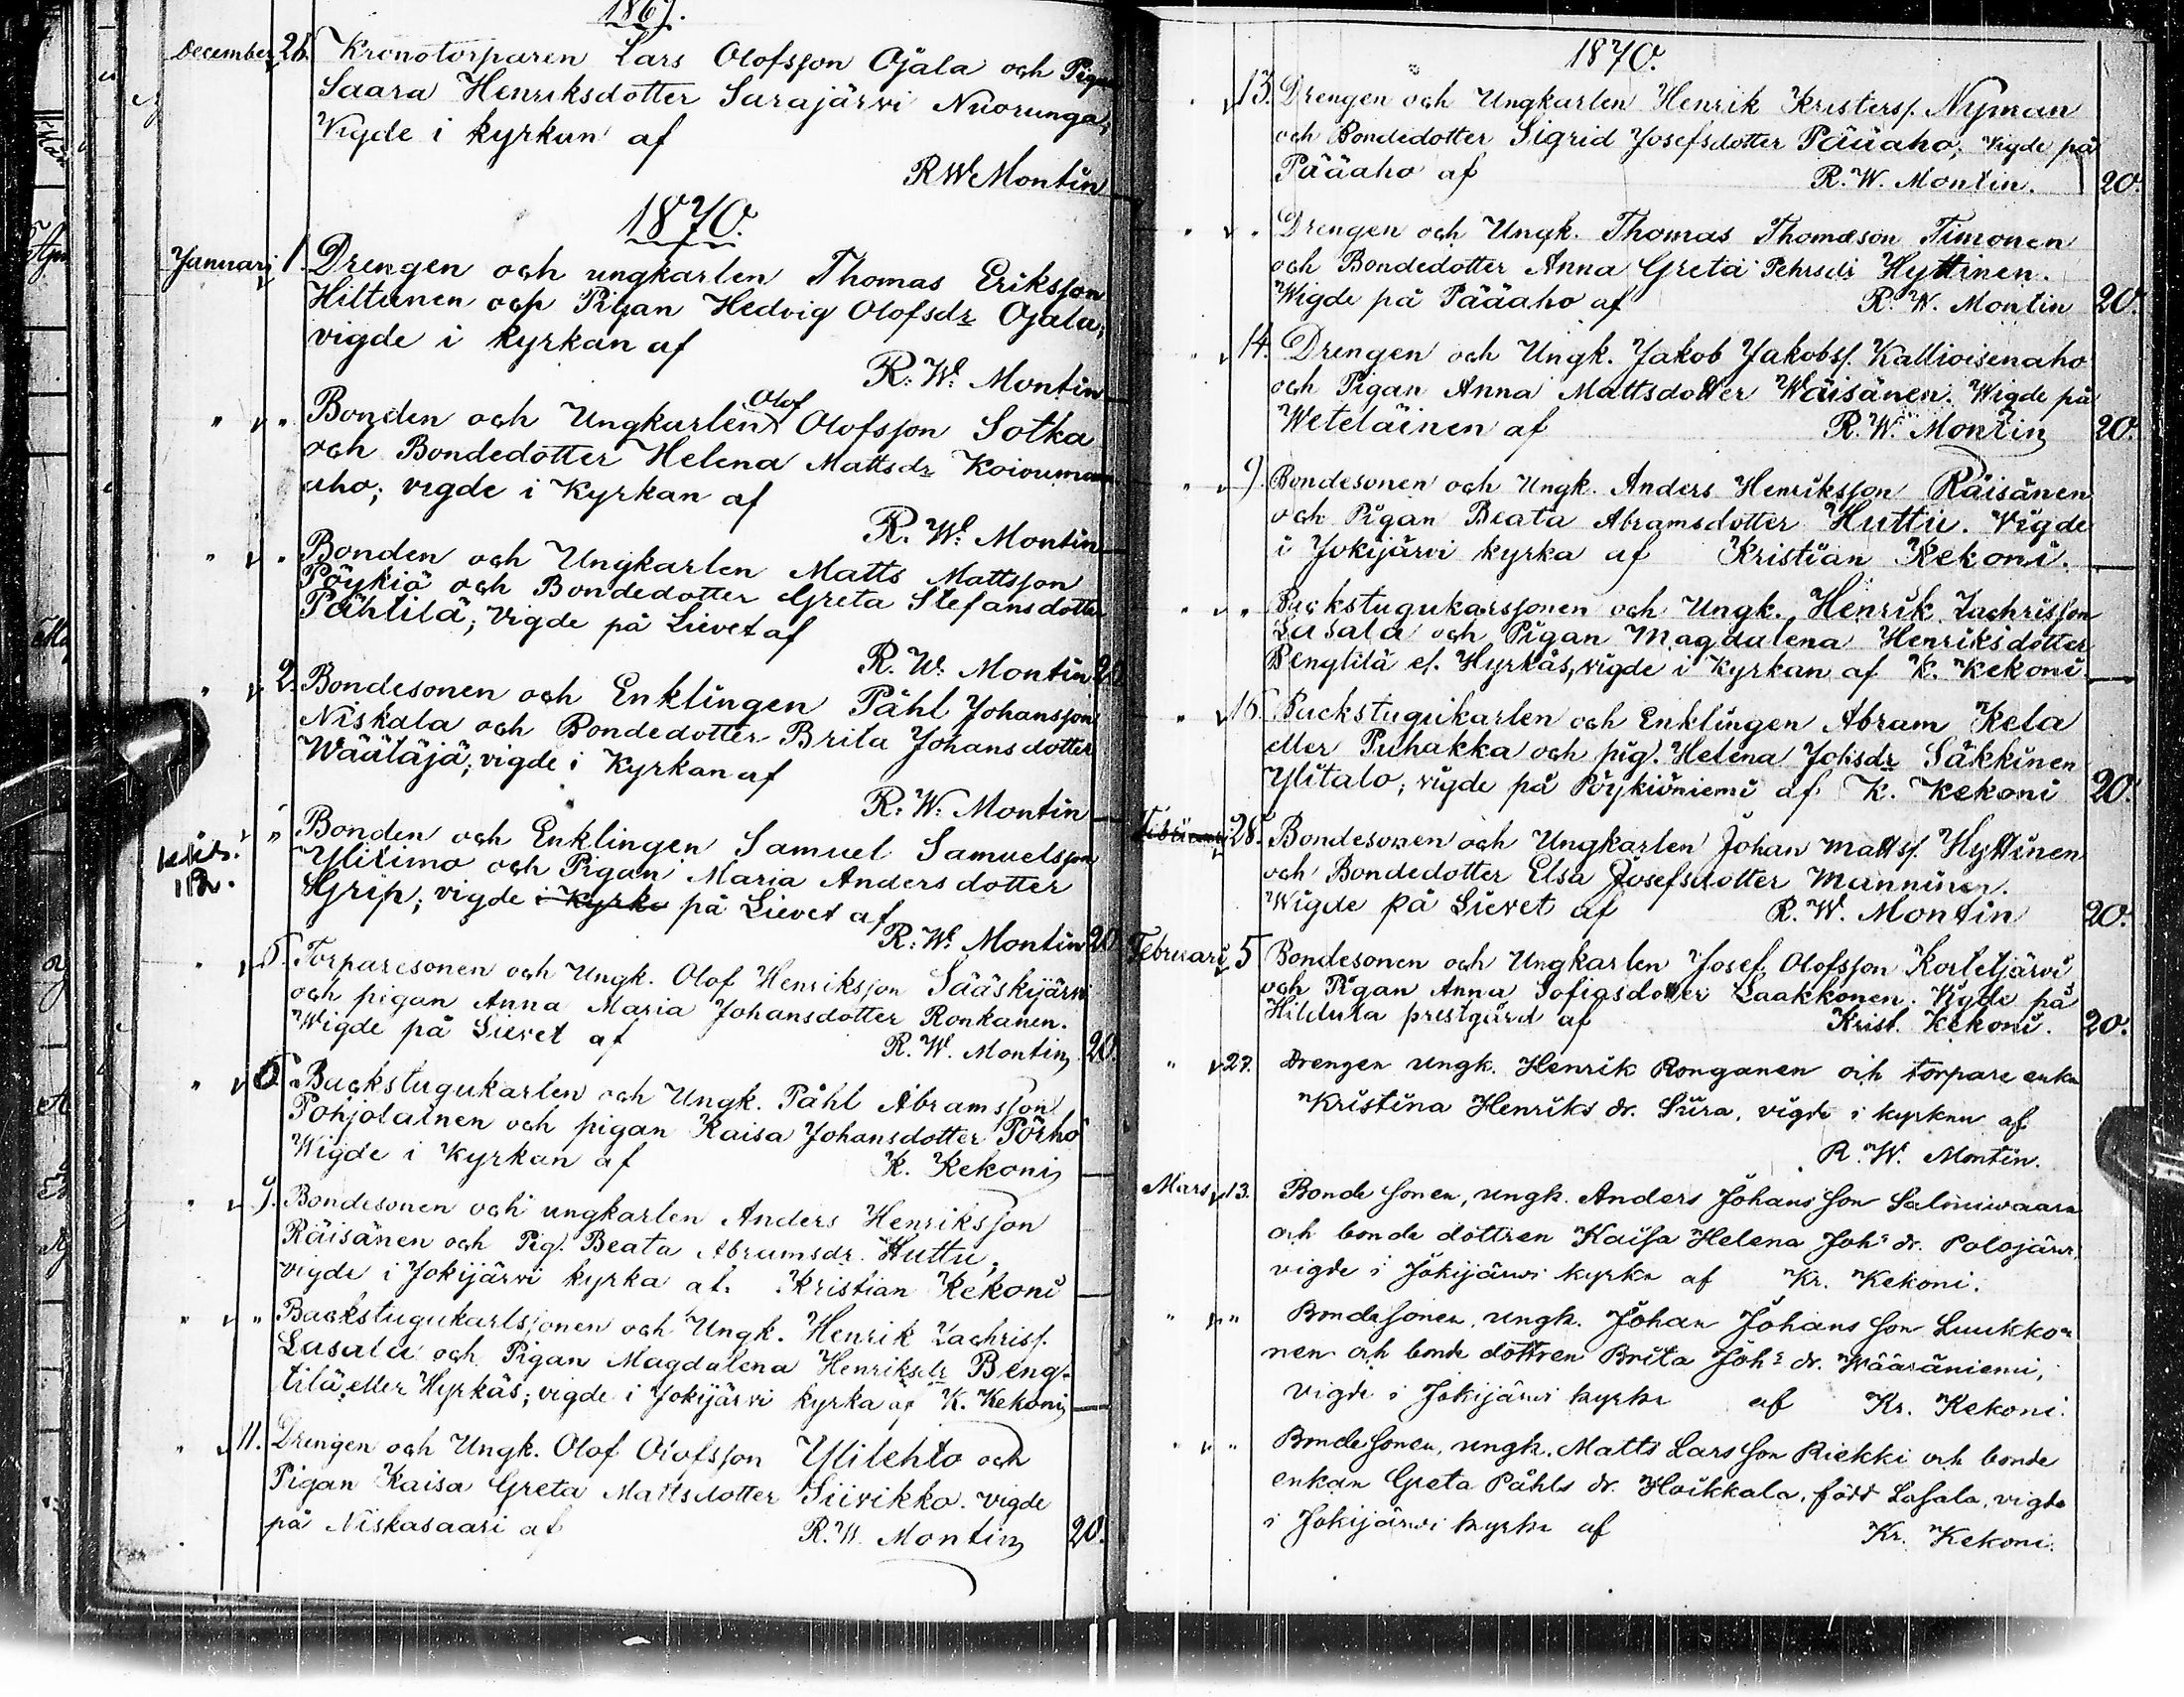 1869.
December 26. Kronotorparen Lars Olofsson Ojala och Pigan
Saara Henriksdotter Sarajärvi Nuorunga;
Vigde i kyrkan af
R W Montin
1870.
Januari 1. Drengen och ungkarlen Thomas Eriksson
Hiltunen och Pigan Hedvig Olofsdr Ojala;
vigde i kyrkan af
R. W. Montin
" " Bonden och Ungkarlen Olof Olofsson Sotka
och Bondedotter Helena Mattsdr
aho; vigde i Kyrkan af
R. W. Montin
" " Bonden och Ungkarlen Matts Mattsson
Pöykiö och Bondedotter Greta Stefansdotter
Pähtilä; Vigde på Lievet af
R. W. Montin 20.
" 2. Bondesonen och Enklingen Påhl Johansson
Niskala och Bondedotter Brita Johansdotter
Wäätäjä; vigde i Kyrkan af
R. W. Montin
" " Bonden och Enklingen Samuel Samuelsson
Ylitimo och Pigan Maria Andersdotter
Grip; vigde i Kyrka på Lievet af
R. W. Montin 20
" 5. Torparesonen och Ungk. Olof Henriksson Sääskijärvi
och pigan Anna Maria Johansdotter Ronkanen.
Wigde på Lievet af
R. W. Montin 20.
" 6. Backstugukarlen och Ungk. Påhl Abramsson
Pohjolainen och pigan Kaisa Johansdotter Pörhö
Wigde i Kyrkan af K. Kekoni
" 9. Bondesonen och ungkarlen Anders Henriksson
Räisänen och Pig. Beata Abramsdr. Huttu;
vigde i Jokijärvi kyrka af. Kristian Kekoni
" " Backstugukarlssonen och Ungk. Henrik Zachriss.
Lasala och Pigan Magdalena Henriksdr Beng-
tilä eller Hyrkäs; vigde i Jokijärvi kyrka af K. Kekoni
" 11. Drengen och Ungk. Olof Olofsson Ylilehto och
Pigan Kaisa Greta Mattsdotter Siivikko. vigde
på Niskasaari af R. W. Montin 20.
1870.
13. Drengen och Ungkarlen Henrik Kristerss. Nyman
och Bondedotter Sigrid Josefsdotter Pääaho; Vigde på
Pääaho af R. W. Montin. 20.
" " Drengen och Ungk. Thomas Thomasson Timonen
och Bondedotter Anna Greta Pehrsdr Hyttinen.
Wigde på Pääaho af R. W. Montin 20.
" 14. Drengen och Ungk. Jakob Jakobss. Kallioisenaho
och Pigan Anna Mattsdotter Wäisänen. Wigde på
Weteläinen af R. W. Montin 20.
" 9. Bondesonen och Ungk. Anders Henriksson Räisänen
och Pigan Beata Abramsdotter Huttu. Vigde
i Jokijärvi kyrka af Kristian Kekoni.
" " Backstugukarssonen och Ungk. Henrik Zachrisson
Lasala och Pigan Magdalena Henriksdotter
Bengtilä el. Hyrkäs, vigde i Kyrkan af K. Kekoni
" 16. Backstugukarlen och Enklingen Abram Kela
eller Puhakka och pig. Helena Johsdr Säkkinen
Ylitalo; vigde på Pöykiöniemi af K. Kekoni 20.
Februari 28. Bondesonen och Ungkarlen Johan Matts. Hyttinen
och Bondedotter Elsa Josefsdotter Manninen.
Wigde på Lievet af R. W. Montin 20.
Februari 5 Bondesonen och Ungkarlen Josef Olofsson Kortetjärvi
och Pigan Anna Sofiasdotter Laakkonen. Vigde på
Hildula prestgård af Krist. Kekoni. 20.
" 27. Drengen ungk. Henrik Ronganen och torpare enkan
Kristina Henriks dr. Siira, vigde i kyrkan af
R. W. Montin.
Mars 13. Bonde sonen, ungk. Anders Johans son Salmiwaara
och bonde dottren Kaisa Helena Johs dr. Polojärvi
vigde i Jokijärwi kyrka af Kr. Kekoni.
" " Bondesonen, ungk. Johan Johans son Luukko-
nen och bonde dottren Brita Johs dr. Wääräniemi,
vigde i Jokijärwi kyrka af Kr. Kekoni.
" " Bondesonen, ungk. Matts Lars son Riekki och bonde
enkan Greta Påhls dr. Hoikkala, född Lasala, vigde
i Jokijärwi kyrka af Kr. Kekoni.